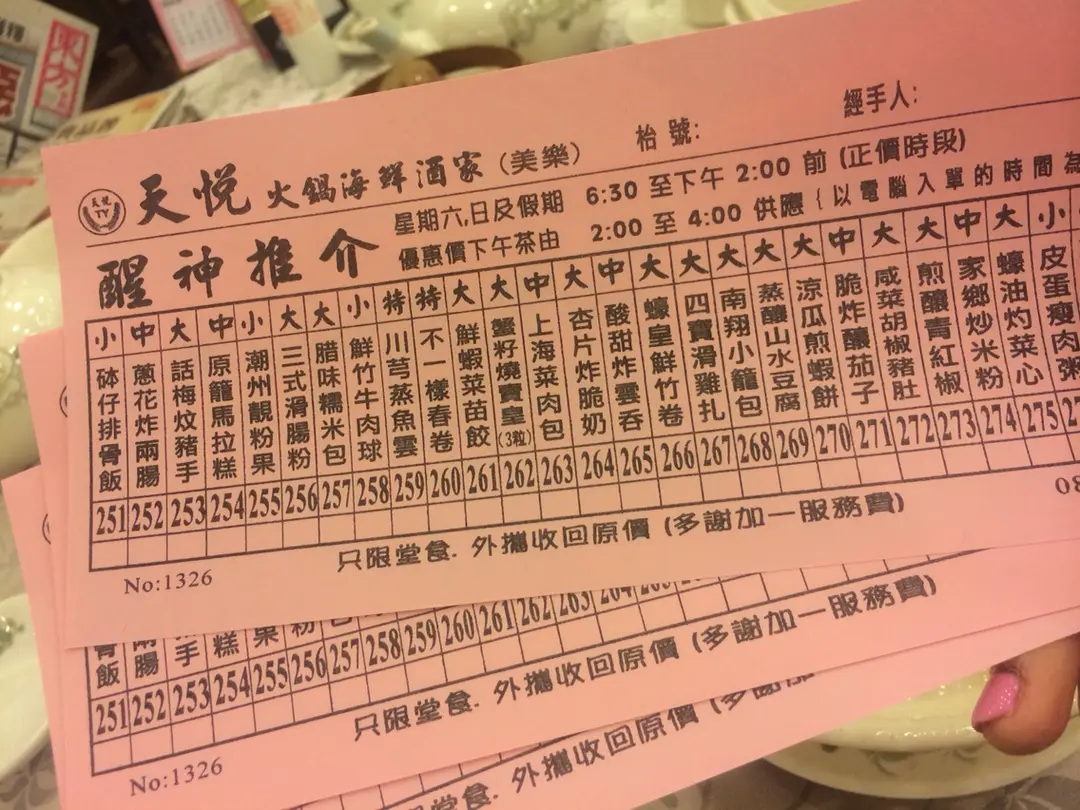 東方
天悅 TY
天悅 火鍋海鮮酒家 (美樂)
枱號:
經手人:
醒神推介
星期六,日及假期 6:30 至下午 2:00 前 (正價時段)
優惠價下午茶由 2:00 至 4:00 供應 {以電腦入單的時間為
小 砵仔排骨飯 251
中 蔥花炸兩腸 252
大 話梅炆豬手 253
中 原籠馬拉糕 254
小 潮州靚粉果 255
大 三式滑腸粉 256
大 腊味糯米包 257
小 鮮竹牛肉球 258
特 川芎蒸魚雲 259
特 不一樣春卷 260
大 鮮蝦菜苗餃 261
大 蟹籽燒賣皇(3粒) 262
中 上海菜肉包 263
大 杏片炸脆奶 264
中 酸甜炸雲吞 265
大 蠔皇鮮竹卷 266
大 四寶滑雞扎 267
大 南翔小籠包 268
大 蒸釀山水豆腐 269
大 涼瓜煎蝦餅 270
中 脆炸釀茄子 271
大 咸菜胡椒豬肚 272
大 煎釀青紅椒 273
中 家鄉炒米粉 274
大 蠔油灼菜心 275
小 皮蛋瘦肉粥 27
只限堂食. 外攜收回原價 (多謝加一服務費)
No:1326
飯 腸 手 糕 果 粉
258 259 260 261 262 263 264 265
251 252 253 254 255 256 257
只限堂食. 外攜收回原價 (多謝加一服務費)
No:1326
只限堂食. 外攜收回原價 (多謝加